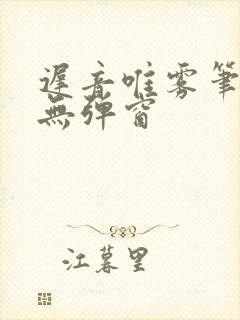 遲音唯雾筆
無弹窗
江暮里